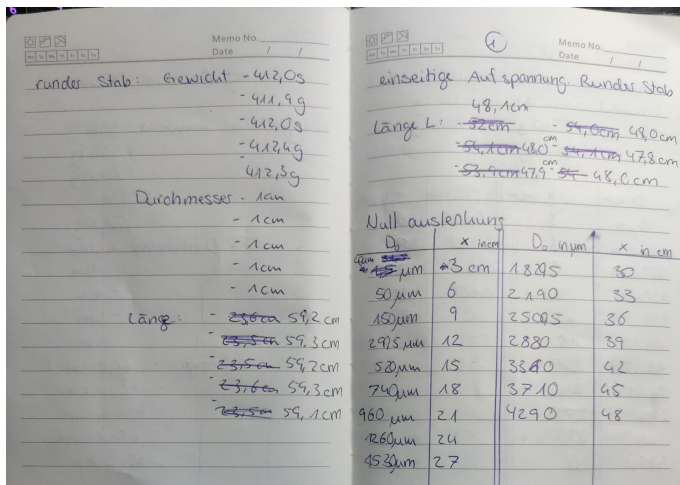 Memo No.
Date / /
Mo Tu We Th Fr Sa Su
runder Stab: Gewicht - 412,0g
- 411,9g
- 412,0g
- 412,4g
412,3g
Durchmesser - 1cm
- 1cm
- 1cm
- 1cm
- 1cm
Länge: - 23,6cm 59,2cm
- 23,5cm 59,3cm
- 23,5cm 59,2cm
- 23,6cm 59,3cm
- 23,5cm 59,1cm
1
Memo No.
Date / /
Mo Tu We Th Fr Sa Su
einseitige Aufspannung Runder Stab
48,1cm
Länge L: - 52cm - 54,0cm 48,0cm
- 54,1cm 48,0cm - 54,1cm 47,8cm
- 53,9cm 47,9cm - 54 - 48,0cm
Null auslenkung
D₀ x in cm D₀ in µm x in cm
µm 3 cm 30
50µm 6 2190 33
150µm 9 36
12 2880 39
520µm 15 42
740µm 18 3710 45
960µm 21 4290 48
1260µm 24
1530µm 27